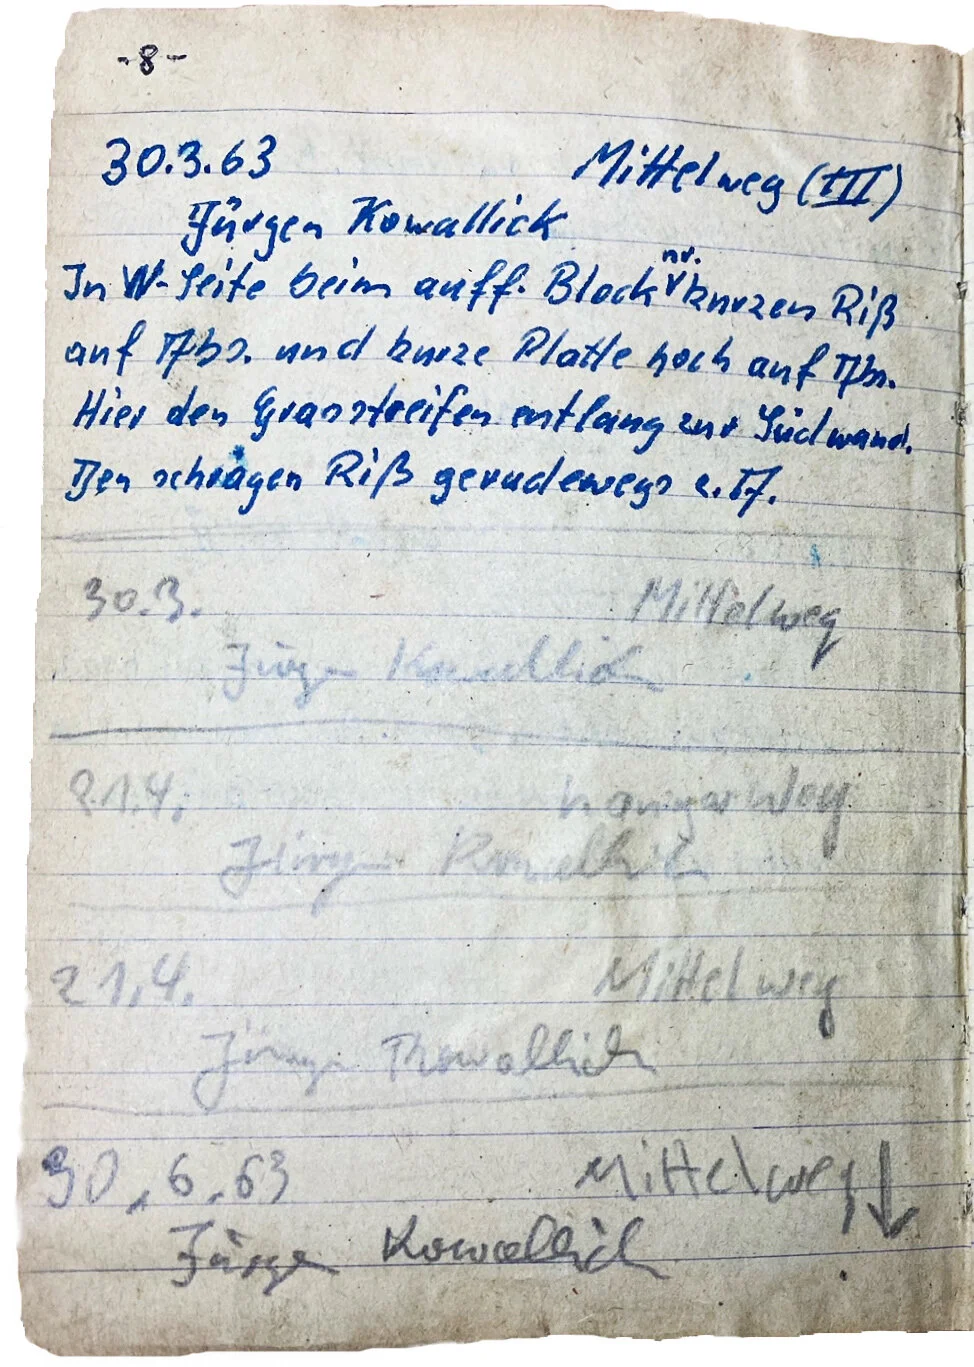 -8-
30.3.63 Mittelweg (III)
Jürgen Kowallick
nr.
In W-Seite beim auff. Block kurzen Riß
auf Abs. und kurze Platte hoch auf Abs.
Hier den Grasstreifen entlang zur Südwand.
Den schrägen Riß geradewegs z. G.
30.3. Mittelweg
Jürgen Kowallick
21.4. Weg
Jürgen Kowallick
21.4. Mittelweg
Jürgen Kowallick
30.6.63 Mittelweg ↓
Jürgen Kowallick